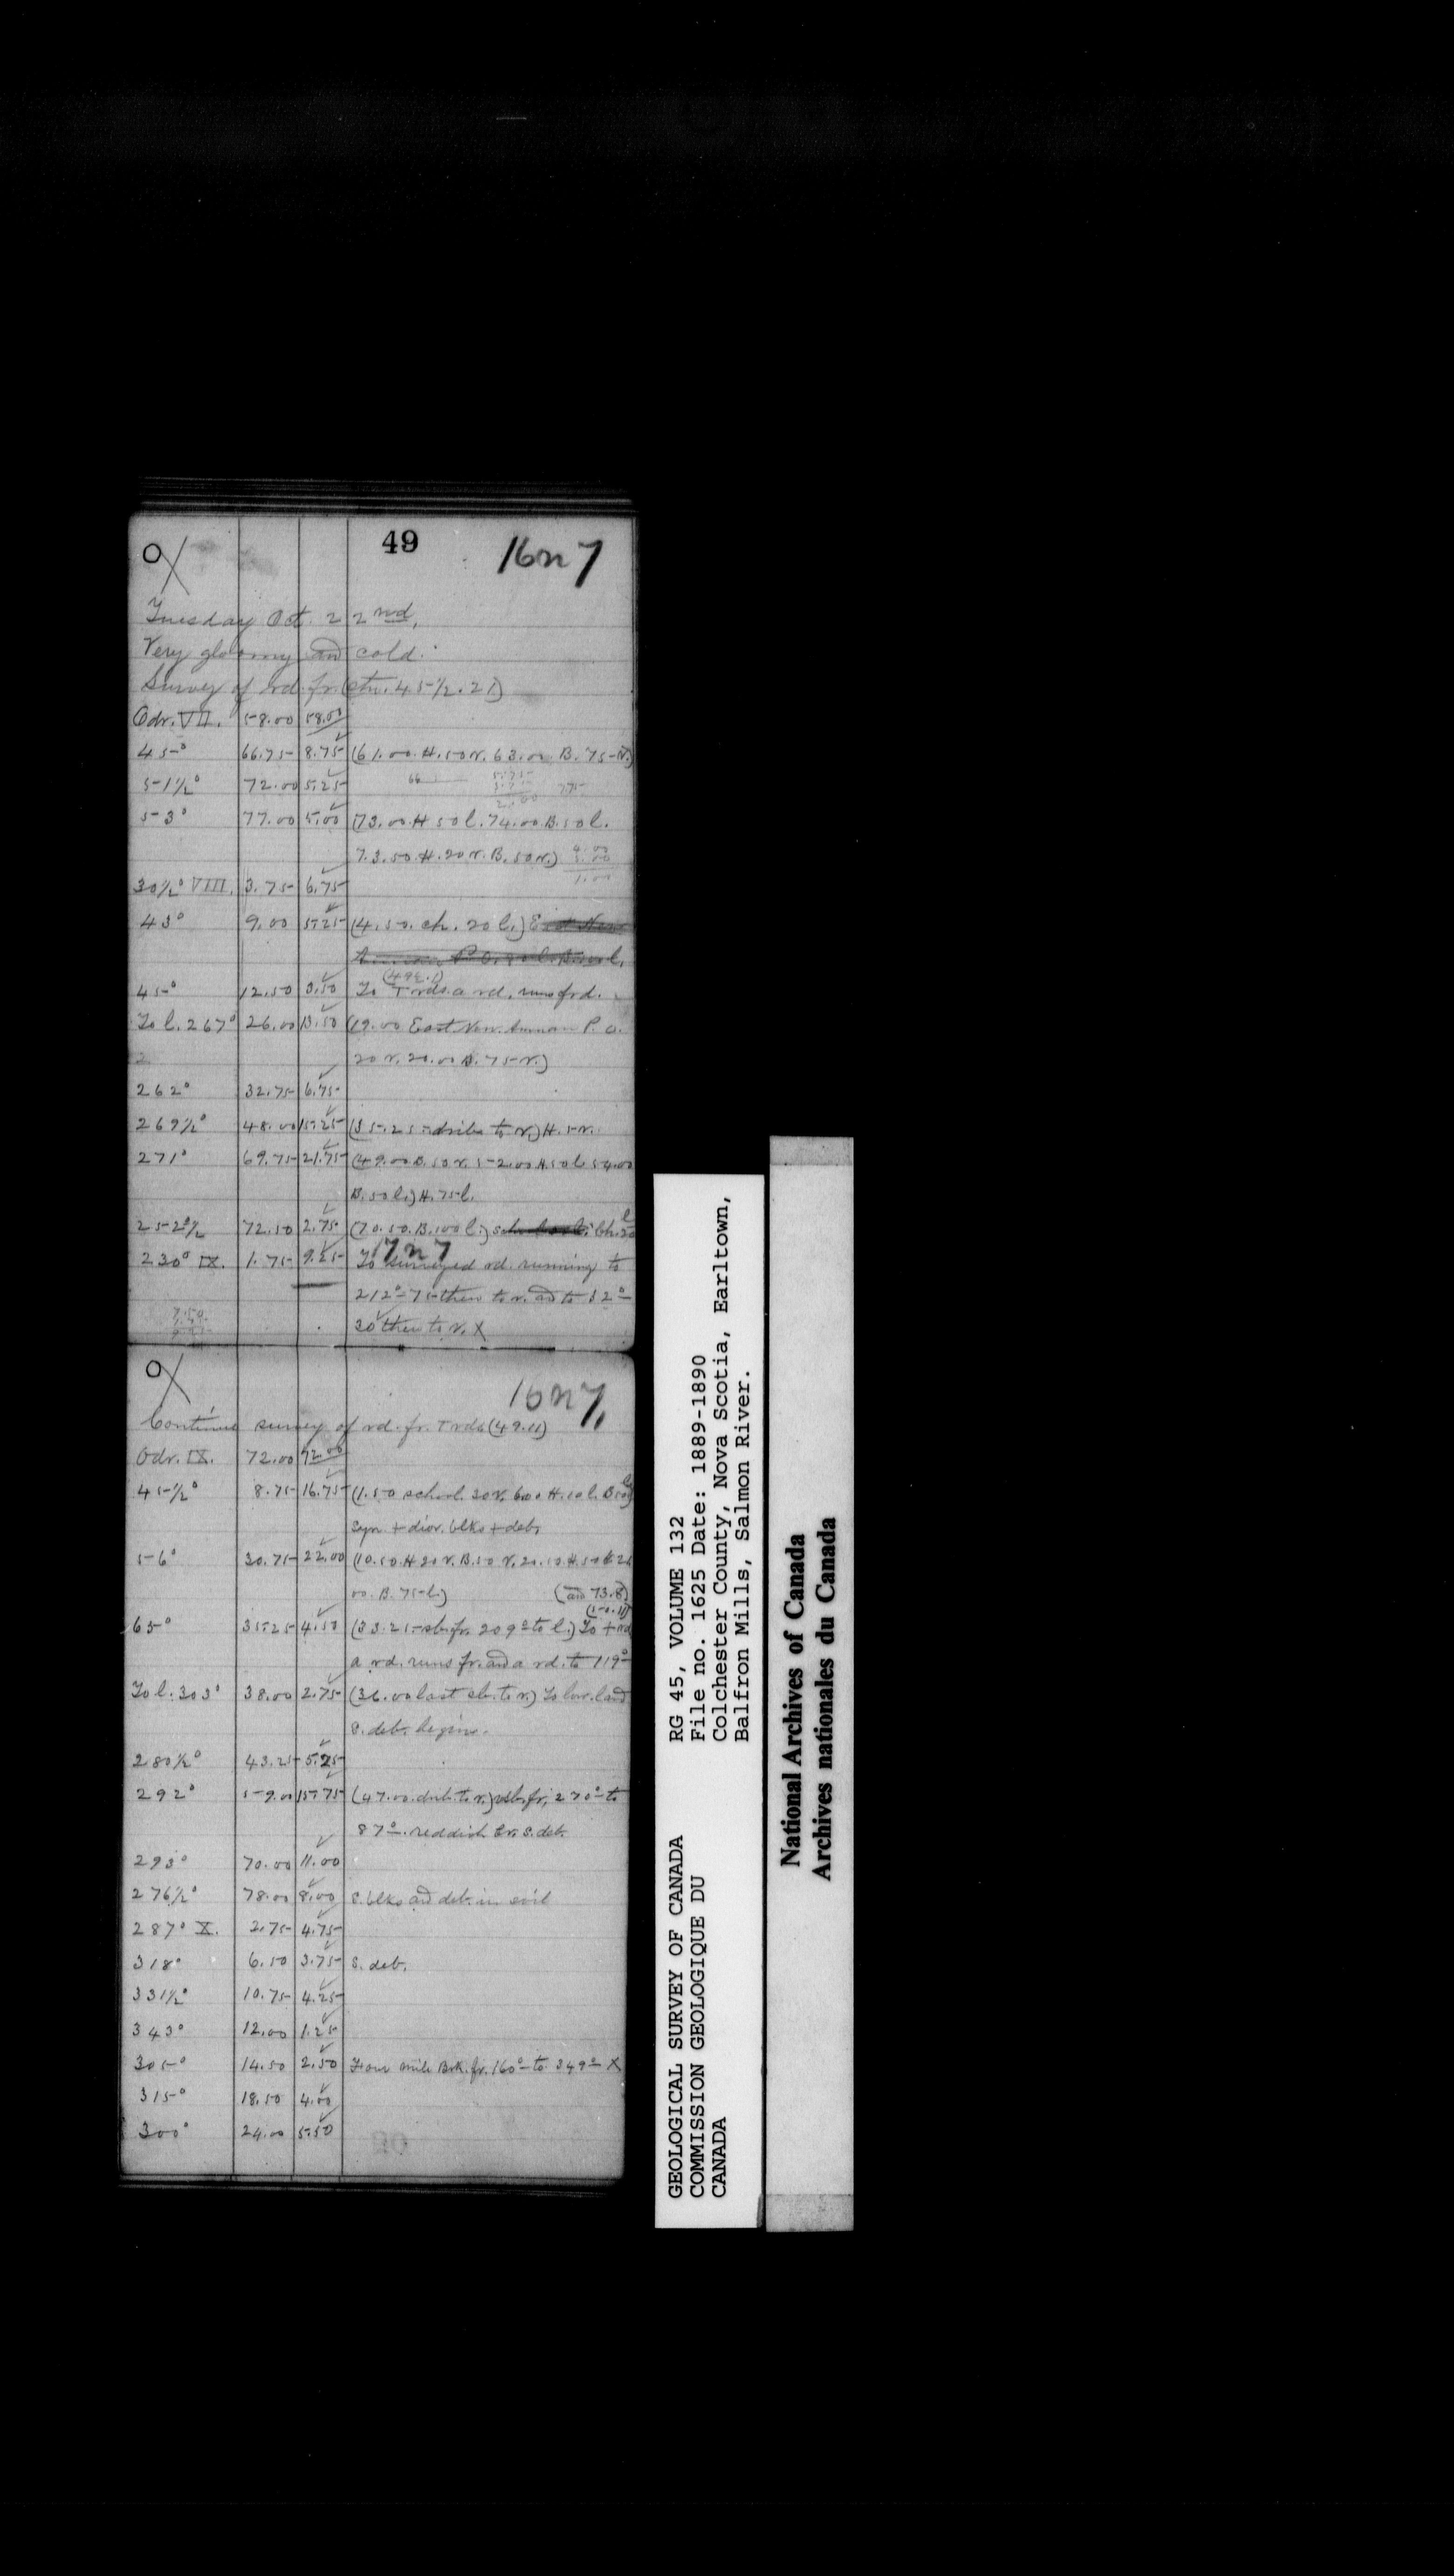 49
16n7
Tuesday Oct. 22nd,
Very gloomy and cold.
Survey of rd. fr. (stn. 45½.21)
Odr. VII. 58.00 58.00
45° 66.75 8.75 (61.00. H. 50 r. 63.00. B. 75 r.)
51½° 72.00 5.25
53° 77.00 5.00 (73.00. H 50 l. 74.00. B. 50 l.
73.50. H. 20 r. B. 50 r.)
30½° VIII. 3.75 6.75
43° 9.00 5.25 (4.50. ch. 20 l.)
(49½.1)
45° 12.50 3.50 To T rds. a rd. runs frd.
To l. 267° 26.00 13.50 (19.00 East New Annan P. O.
20 r. 20.00 B. 75 r.)
262° 32.75 6.75
269½° 48.00 15.25 (35.25 to r.) H. 5 r.
271° 69.75 21.75 (49.00 B. 50 r. 52.00 H. 50 l. 54.00
B. 50 l.) H. 75 l.
252½ 72.50 2.75 (70.50. B. 100 l.)
17n7
230° IX. 1.75 9.25 To surveyed rd. running to
212° 75 then to r. and to 32°
30 then to r. X
16n7,
Continue survey of rd. fr. T rds (49.11)
Odr. IX. 72.00 72.00
45½° 8.75 16.75 (1.50 school. 20 r. 6.00 H. 10 l. B 50 l.)
Syn. + dior. blks + deb.
56° 30.75 22.00 (10.50 H 20 r. B. 50 r. 20.50. H. 50 l. 26
00. B. 75 l.) (and 73.8)
65° 35.25 4.50 (33.25 sbr. fr. 209° to l.) To + rds
a rd. runs fr. and a rd. to 119°
To l. 303° 38.00 2.75 (36.00 last sbr. to r.) To low. land
S. deb. begins.
280½° 43.25 5.25
292° 59.00 15.75 (47.00. to r.) sbr. fr. 270° to
87°. reddish br. S. deb.
293° 70.00 11.00
276½° 78.00 8.00 S. blks and deb. in soil
287° X. 2.75 4.75
318° 6.50 3.75 S. deb.
331½° 10.75 4.25
343° 12.00 1.25
305° 14.50 2.50 Four mile Brk. fr. 160° to 349° X
315° 18.50 4.00
300° 24.00 5.50
GEOLOGICAL SURVEY OF CANADA
COMMISSION GEOLOGIQUE DU
CANADA
RG 45, VOLUME 132
File no. 1625 Date: 1889-1890
Colchester County, Nova Scotia, Earltown,
Balfron Mills, Salmon River.
National Archives of Canada
Archives nationales du Canada